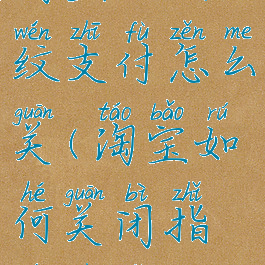 wén zhī fù zěn me
纹支付怎么
guān táo bǎo rú
关(淘宝如
hé guān bì zhǐ
何关闭指